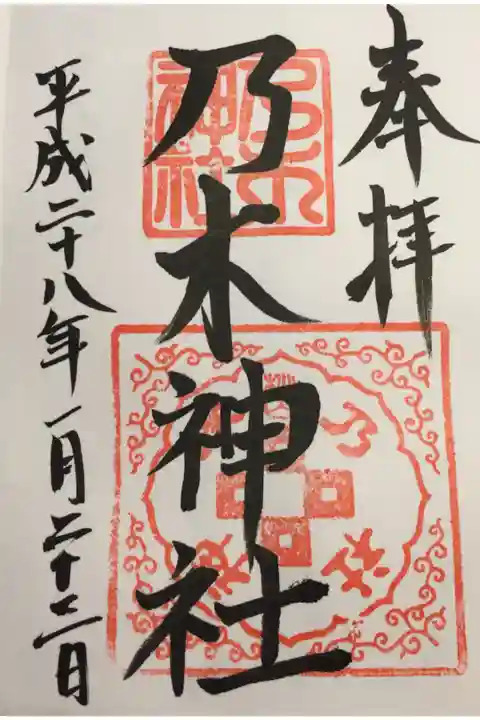 奉拝
乃木神社
平成二十八年一月二十二日